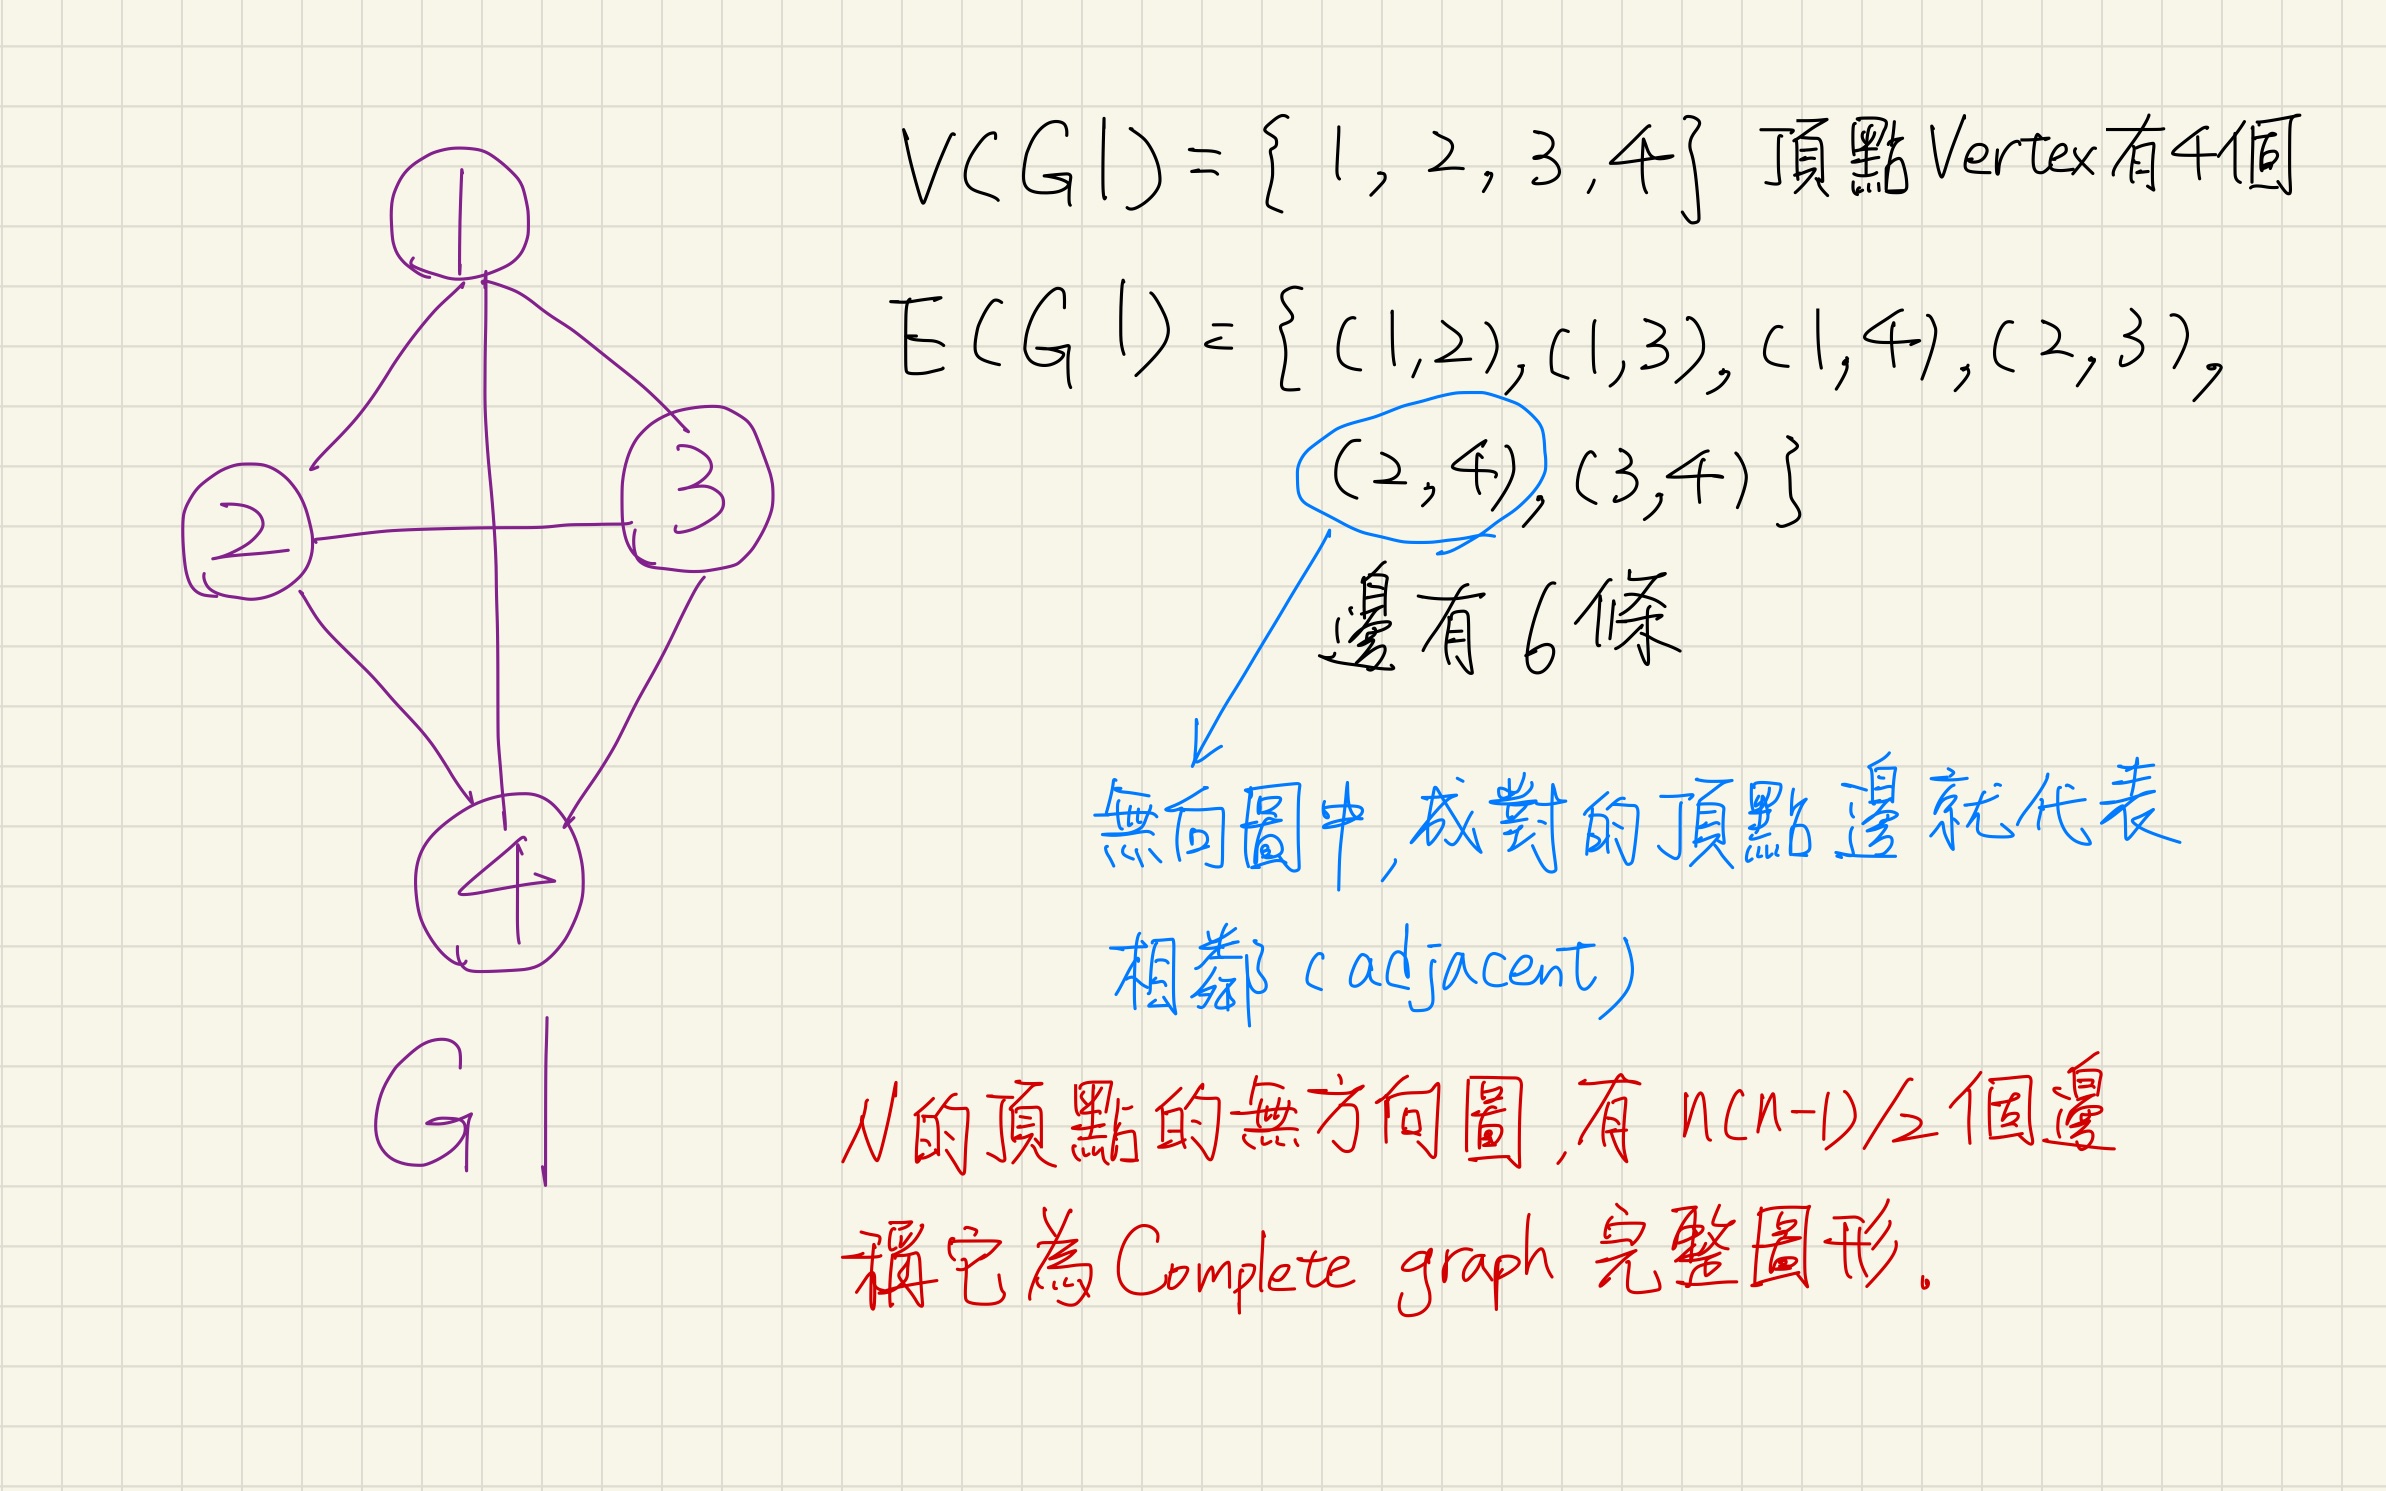 V(G1)={1,2,3,4} 頂點Vertex有4個
E(G1)={(1,2),(1,3),(1,4),(2,3),
(2,4),(3,4)}
邊有6條
無向圖中,成對的頂點邊就代表
相鄰(adjacent)
N的頂點的無方向圖,有n(n-1)/2個邊
稱它為Complete graph完整圖形。
1
2
3
4
G1